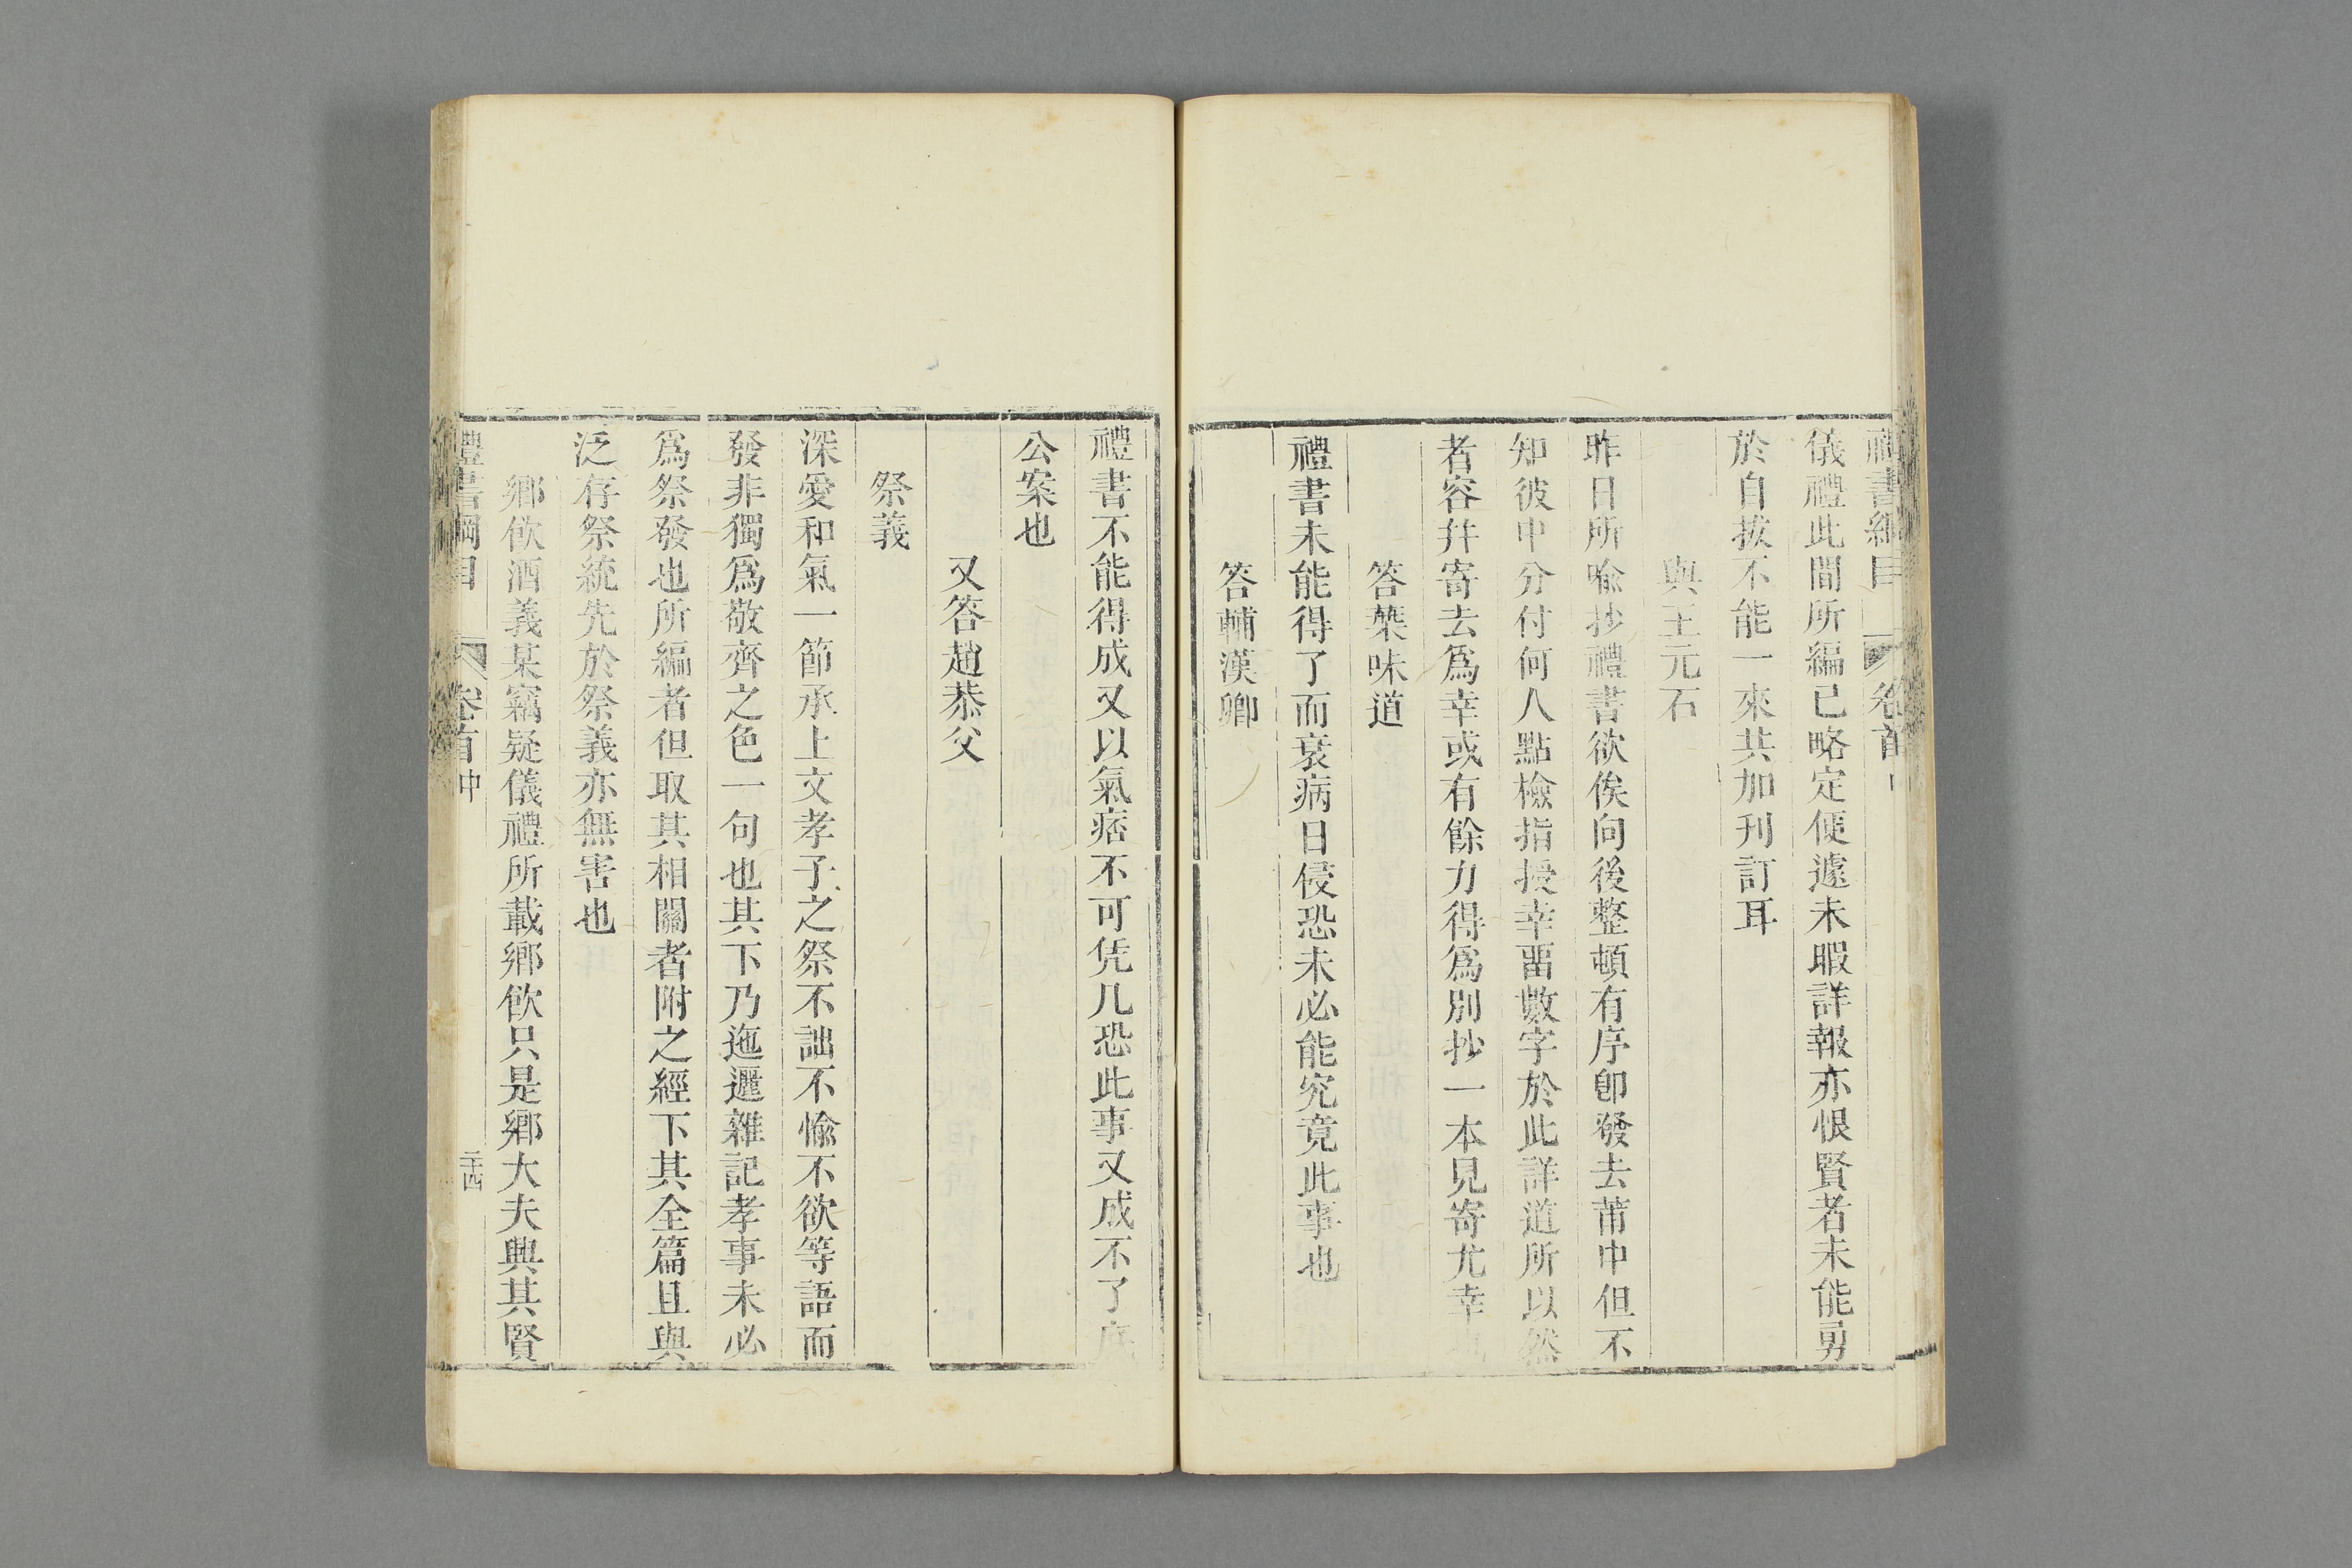 禮書綱目 卷首
儀禮此間所編已略定便遽未暇詳報亦恨賢者未能勇
於自拔不能一來共加刊訂耳
與王元石
昨日所喻抄禮書欲俟向後整頓有序卽發去莆中但不
知彼中分付何人點檢指授幸畱數字於此詳道所以然
者容幷寄去爲幸或有餘力得爲別抄一本見寄尤幸
答葉味道
禮書未能得了而衰病日侵恐未必能究竟此事也
答輔漢卿
禮書不能得成又以氣痞不可凭几恐此事又成不了底
公案也
又答趙恭父
祭義
深愛和氣一節承上文孝子之祭不詘不愉不欲等語而
發非獨爲敬齊之色一句也其下乃迤邐雜記孝事未必
爲祭發也所編者但取其相關者附之經下其全篇且與
泛存祭統先於祭義亦無害也
鄉飮酒義某竊疑儀禮所載鄉飮只是鄉大夫與其賢
禮書綱目 卷首中 二十四